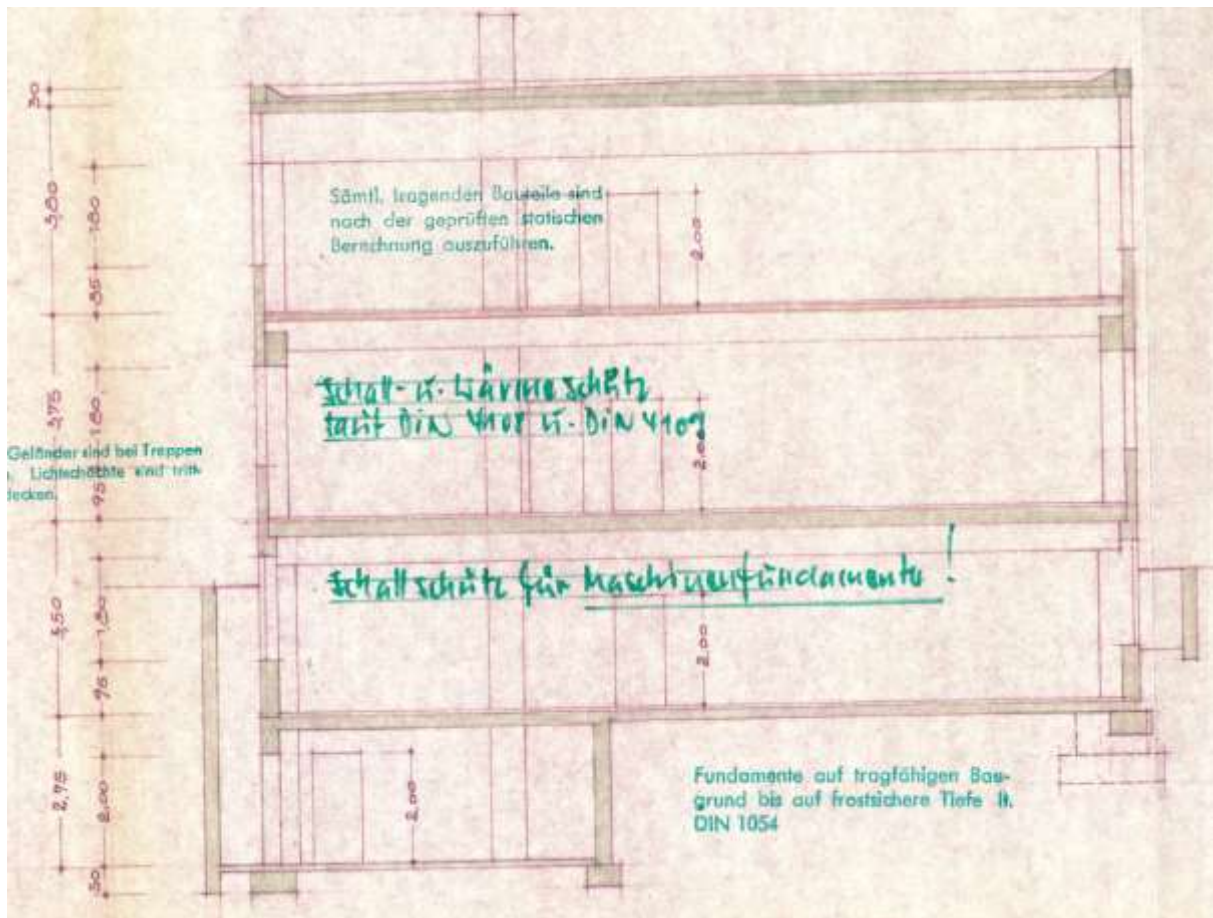 30
3,80
1,80
Sämtl. tragenden Bauteile sind
nach der geprüften statischen
Berechnung auszuführen.
2,00
3,75
1,80
Schall- u. Wärmeschutz
laut DIN 4108 u. DIN 4109
2,00
Geländer sind bei Treppen
Lichtschächte sind tritt-
decken.
95
Schallschutz für Maschinenfundamente!
3,50
1,80
95
2,00
2,75
2,00
2,00
Fundamente auf tragfähigen Bau-
grund bis auf frostsichere Tiefe lt.
DIN 1054